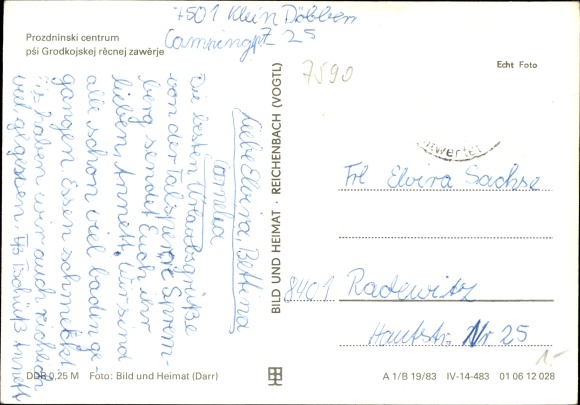 7501 Klein Döbben
Campingpl. 25
Prozdninski centrum
pśi Grodkojskej rěcnej zawěrje
Liebe Elvira, Bettina
Die besten Urlaubsgrüße
von der Talsperre Sprem-
berg sendet Euch ihr
lieben, Annett. Wir sind
alle schon viel baden ge-
gangen. Essen schmeckt
Eis haben wir auch reichlich
viel gegessen. Tschüß Annett
DDR 0,25 M Foto: Bild und Heimat (Darr)
BILD UND HEIMAT · REICHENBACH (VOGTL)
7590
Echt Foto
Frl Elvira Sachse
8401 Radewitz
Hauptstr. Nr 25
1.-
A 1/B 19/83 IV-14-483 01 06 12 028